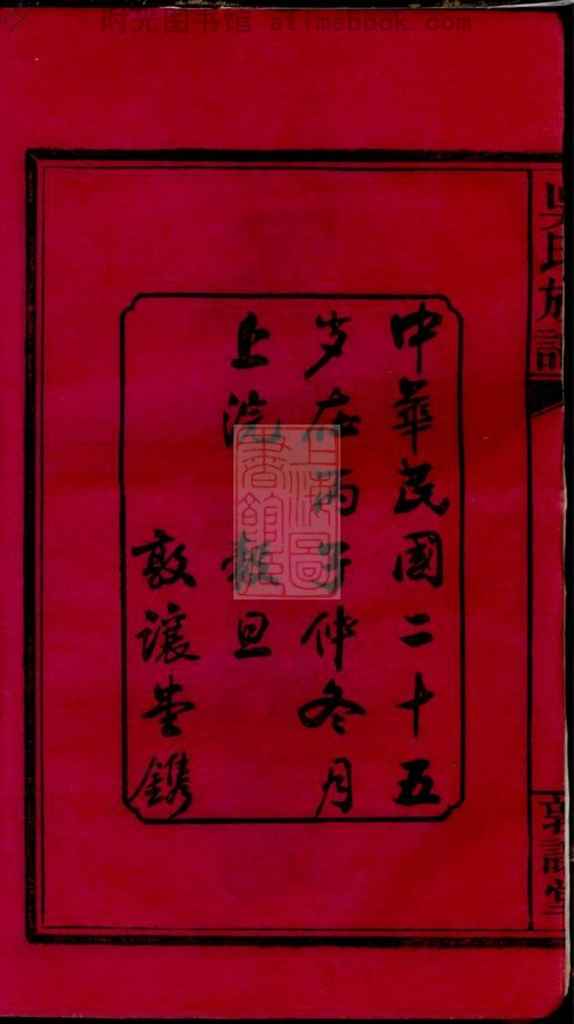 时光图书馆 atimebook.com
中華民國二十五
岁在丙子仲冬月
上浣穀旦
敦讓堂鐫
吳氏族譜
敦讓堂
上海圖書館藏